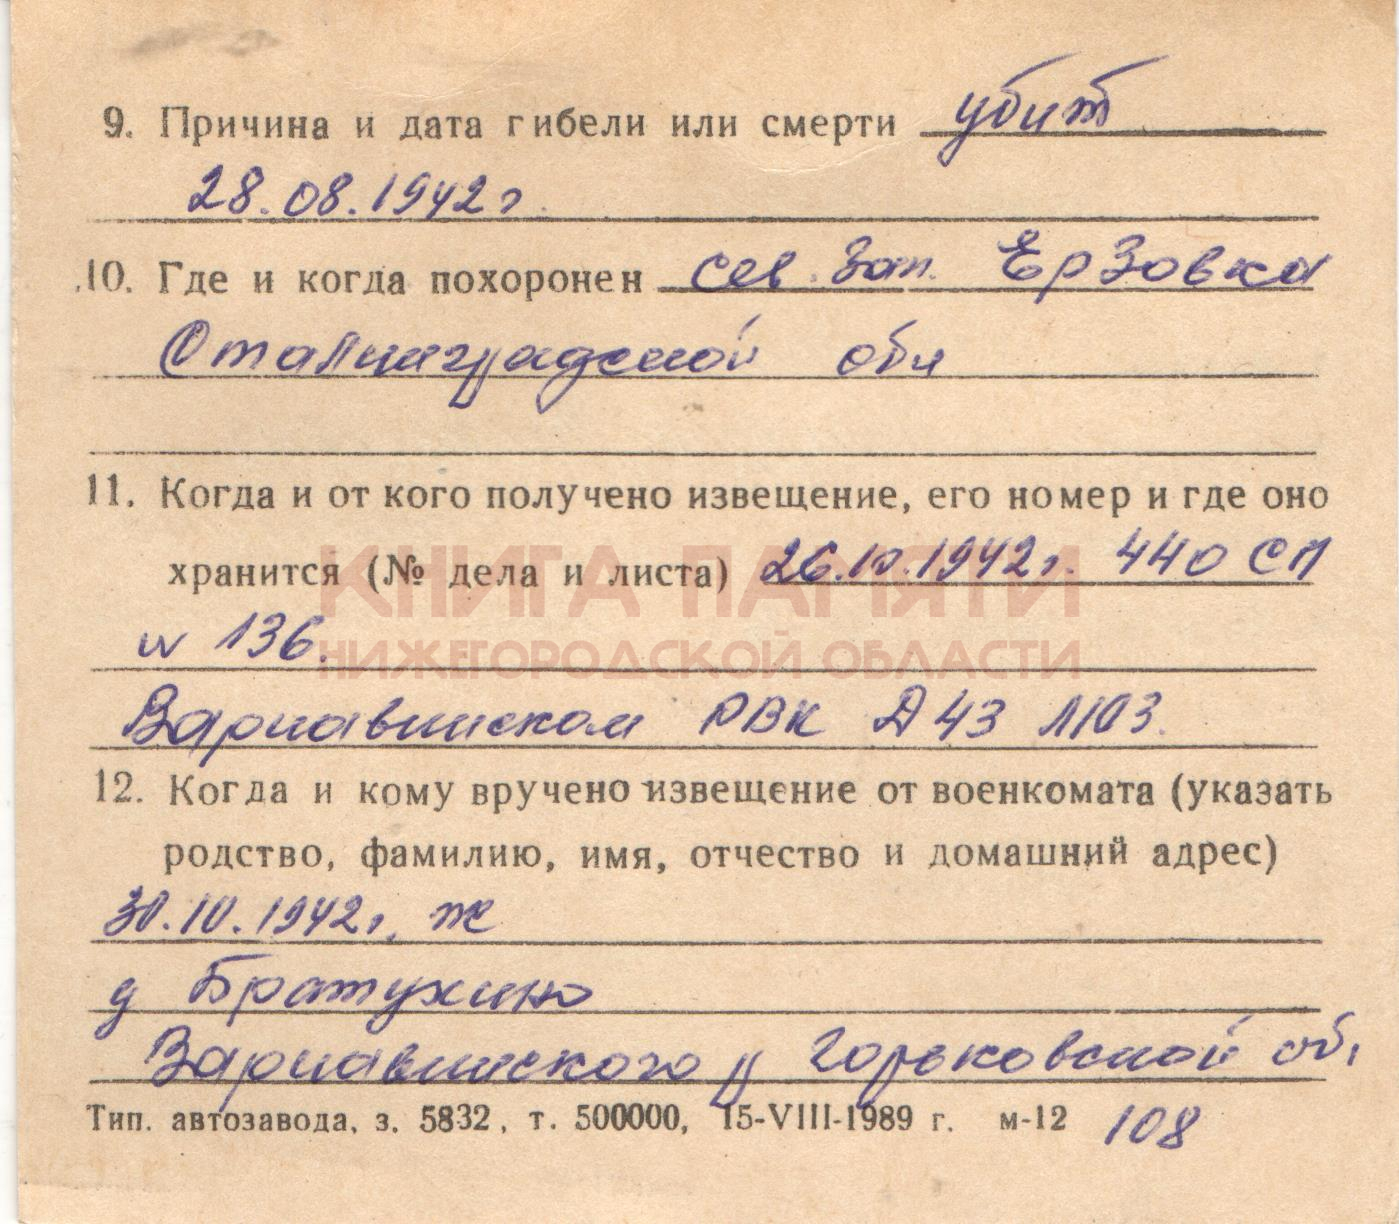 9. Причина и дата гибели или смерти убит
28.08.1942 г.
10. Где и когда похоронен сев. зап. Ерзовка
Сталинградской обл
11. Когда и от кого получено извещение, его номер и где оно
хранится (№ дела и листа) 26.10.1942 г. 440 СП
КНИГА ПАМЯТИ
N 136.
НИЖЕГОРОДСКОЙ ОБЛАСТИ
Варнавинском РВК Д 43 Л103.
12. Когда и кому вручено извещение от военкомата (указать
родство, фамилию, имя, отчество и домашний адрес)
30.10.1942 г. ж
д Братухино
Варнавинского р Горьковской об.
Тип. автозавода, з. 5832, т. 500000, 15-VIII-1989 г. м-12 108